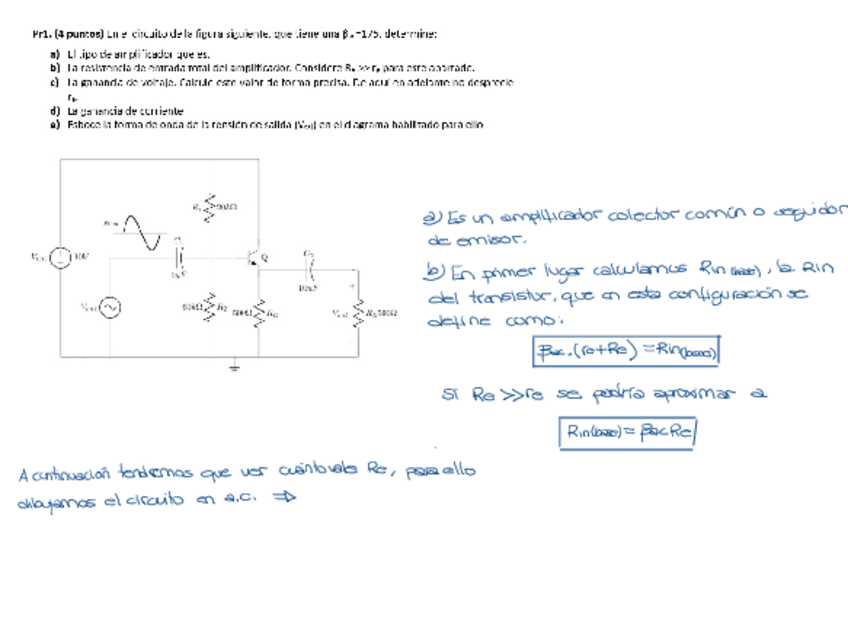 Pr1. (4 puntos) En el circuito de la figura siguiente, que tiene una β =175, determine:
a) El tipo de amplificador que es.
b) La resistencia de entrada total del amplificador. Considere Rₑ >> rₑ para este apartado.
c) La ganancia de voltaje. Calcule este valor de forma precisa. De aquí en adelante no desprecie
rₑ.
d) La ganancia de corriente
e) Esboce la forma de onda de la tensión de salida (Vout) en el diagrama habilitado para ello
a) Es un amplificador colector común o seguidor
de emisor.
b) En primer lugar calculamos Rin(base), la Rin
del transistor, que en esta configuración se
define como:
βac.(re+Re) = Rin(base)
Si Re >>re se podría aproximar a
Rin(base) = βac Re
A continuación tendremos que ver cuánto vale Re, para ello
dibujamos el circuito en a.c. ⇒
R1
Q
10V
R2